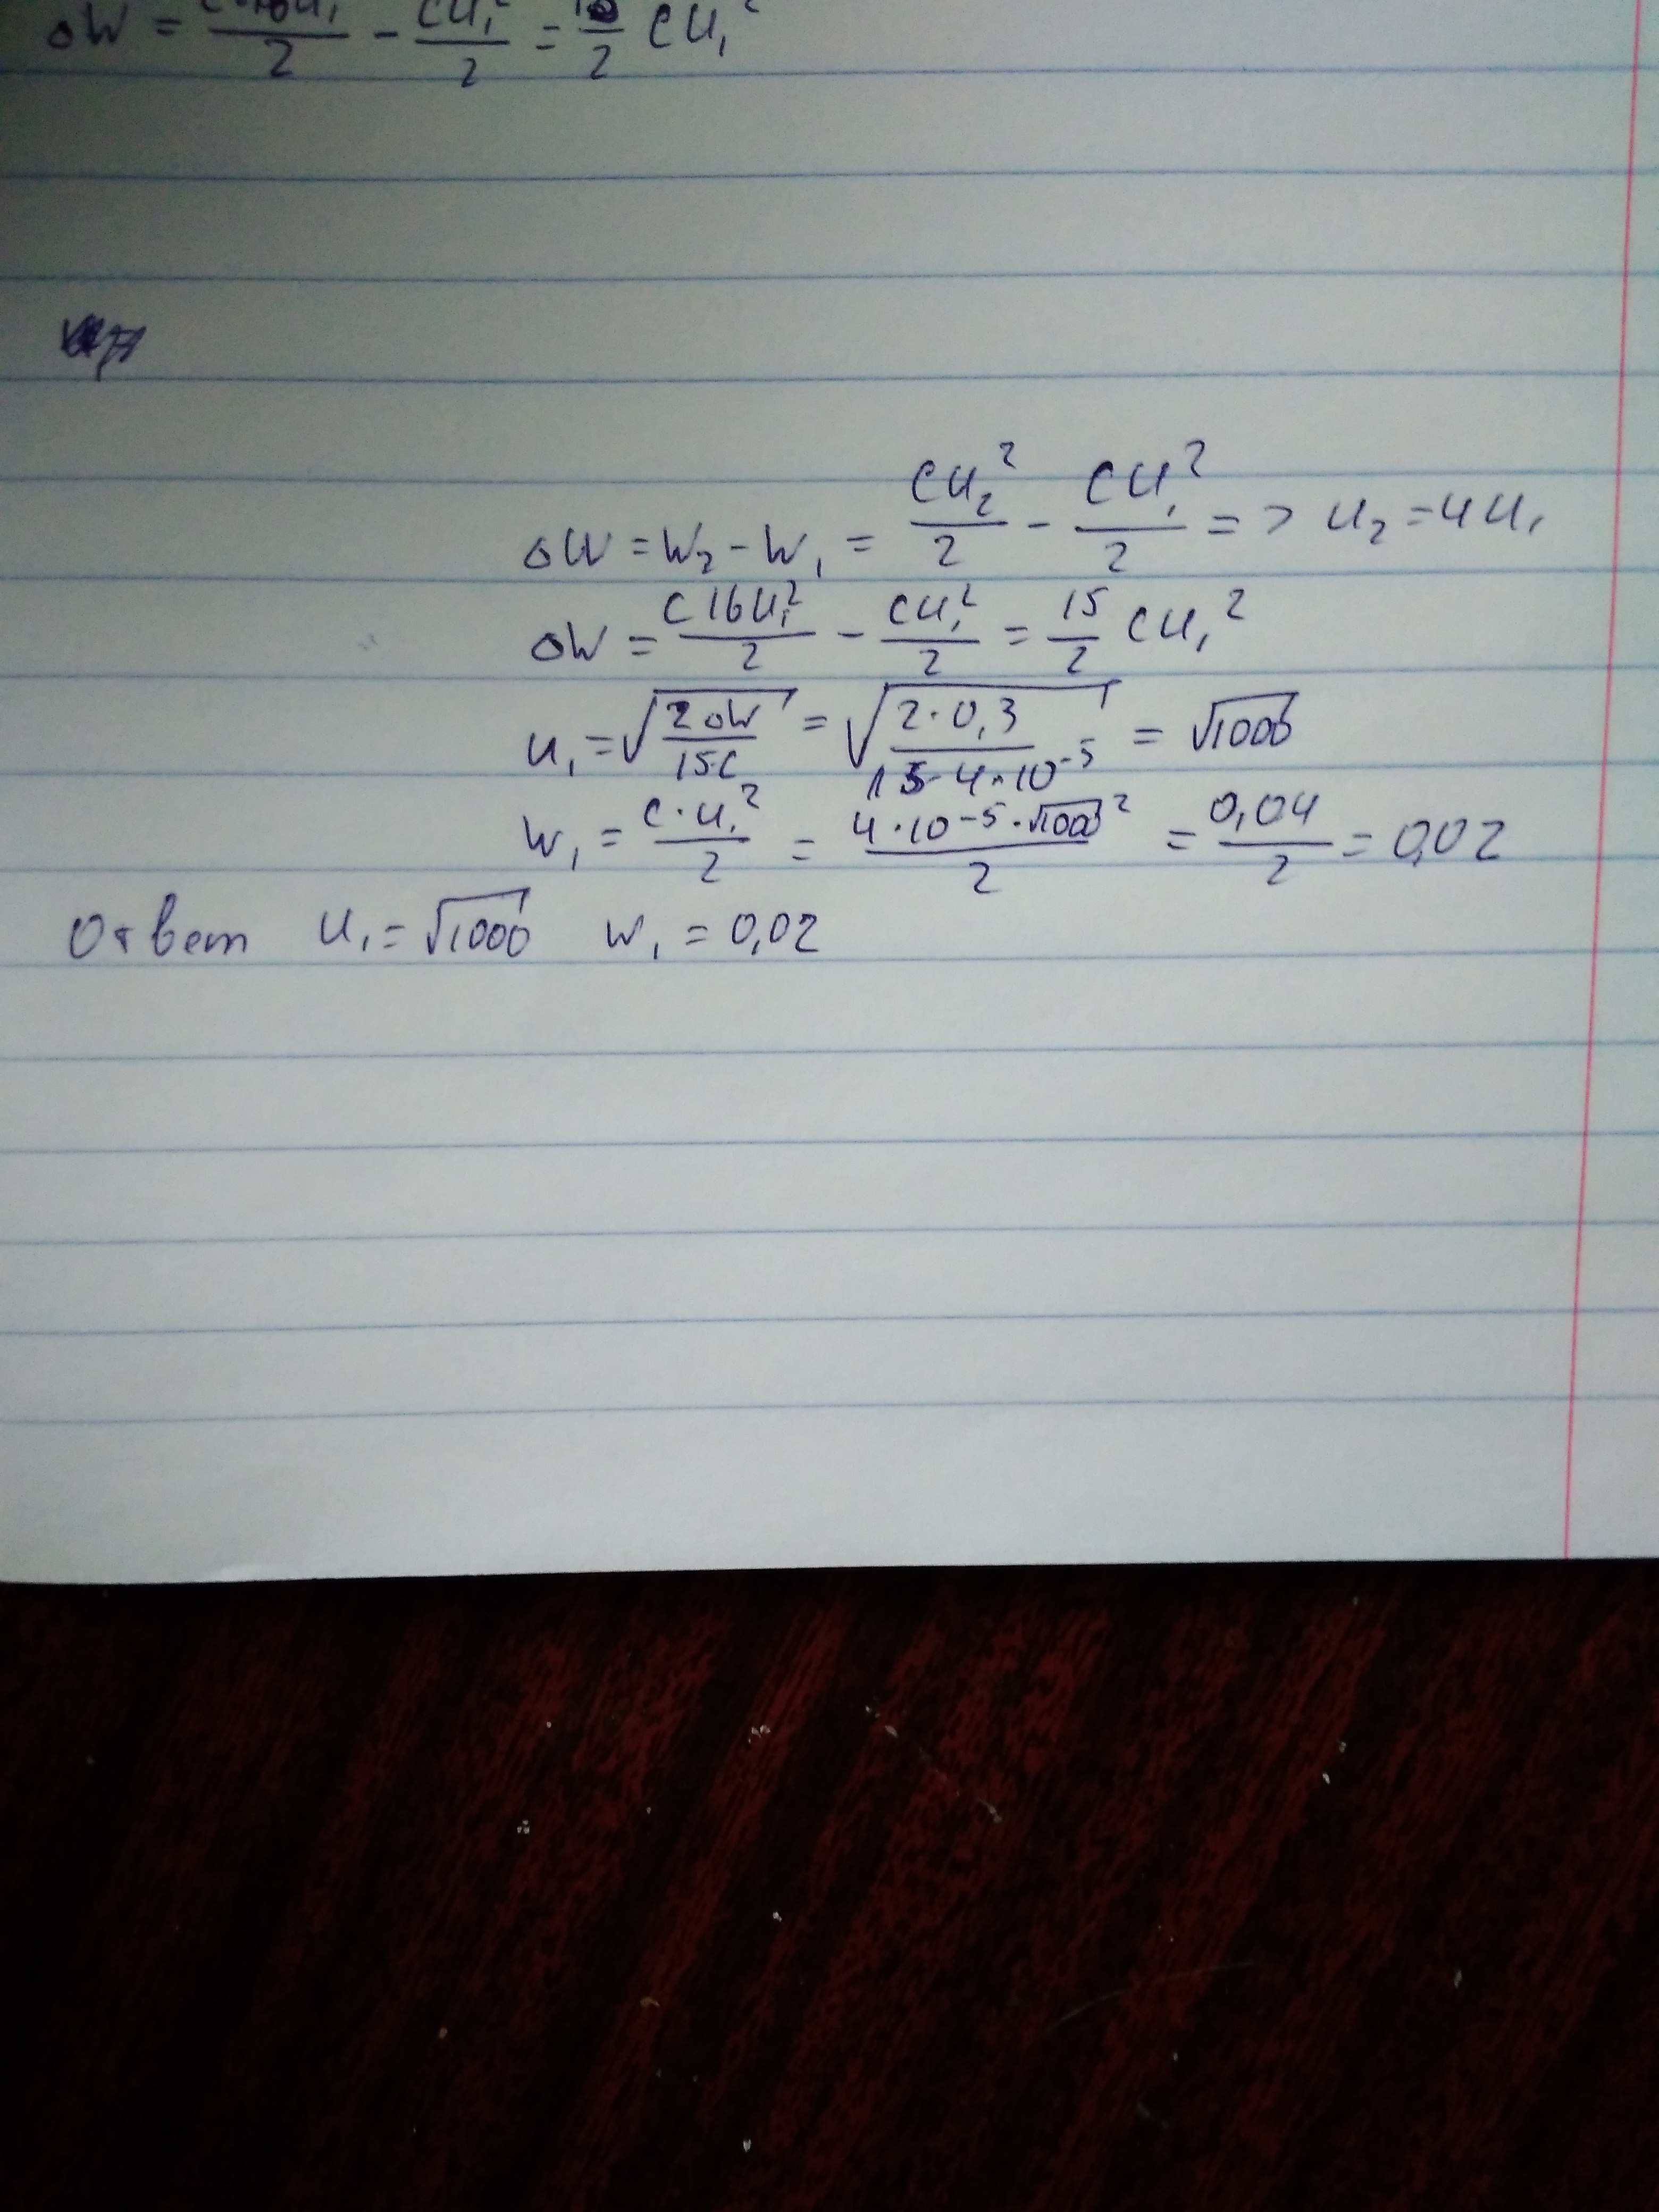 ΔW = C·16U₁/2 - CU₁²/2 = /2 CU₁²
ΔW = W₂ - W₁ = CU₂²/2 - CU₁²/2 => U₂ = 4U₁
ΔW = C16U₁²/2 - CU₁²/2 = 15/2 CU₁²
U₁ = √(2ΔW/15C) = √(2·0,3/15·4·10⁻⁵) = √1000
W₁ = C·U₁²/2 = 4·10⁻⁵·√1000²/2 = 0,04/2 = 0,02
Ответ U₁ = √1000 W₁ = 0,02